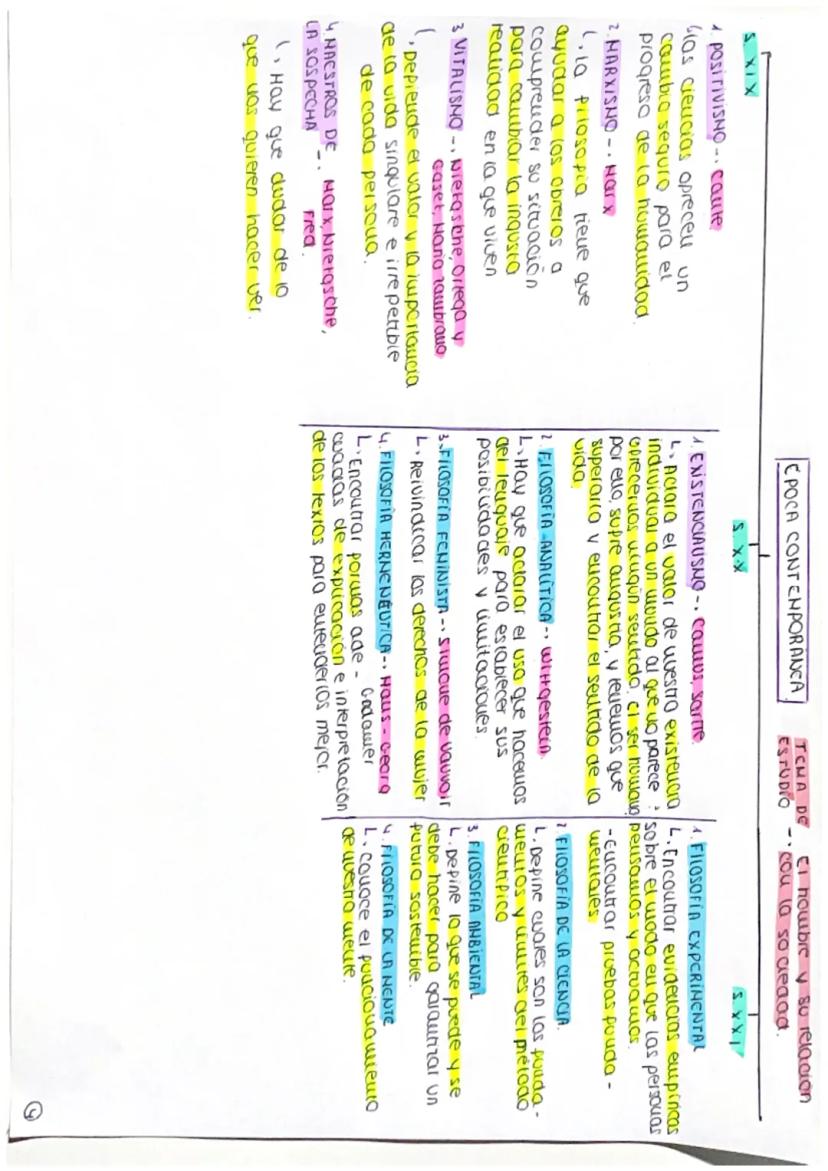 ÉPOCA CONTEMPORÁNEA
TEMA DE
ESTUDIO -, El hombre y su relación
con la sociedad.
S. XIX
1. POSITIVISMO -, Comte
↳ las ciencias aprecen un
cambio seguro para el
progreso de la humanidad.
2. MARXISMO -, Marx
↳, la filosofía tiene que
ayudar a los obreros a
comprender su situación
para cambiar la ingusta
realidad en la que viven
3. VITALISMO -, Nietgsche, Ortega y
Gaset, María Zambrano
↳, Depiende el valor y la importancia
de la vida singulare e irrepetible
de cada persona.
4. MAESTROS DE
LA SOSPECHA -, Marx, Nietgsche,
Fred.
↳, Hay que dudar de lo
que nos quieren hacer ver.
S. XX
1. EXISTENCIALISMO -, Camus Sartre.
↳, Aclara el valor de nuestra existencia
individual a un mundo al que no parece
oprecernos ningún sentido. El ser humano
por ello, supre angustia, y tenemos que
superarla y encontrar el sentido de la
vida.
2. FILOSOFÍA ANALÍTICA -, Wittgestein.
↳, Hay que aclarar el uso que hacemos
del lenguaje para establecer sus
posibilidades y limitaciones
3. FILOSOFÍA FEMINISTA -, Simone de Vauvoir
↳, Reivindicar los derechos de la mujer
4. FILOSOFÍA HERMENÉUTICA -, Hans-Georg
Gadamer
↳, Encontrar pormas ade-
cuadas de explicación e interpretación
de los textos para entenderlos mejor.
S. XXI
1. FILOSOFÍA EXPERIMENTAL
↳, Encontrar evidencias empíricas
sobre el modo en que las personas
pensamos y actuamos.
- Encontrar pruebas punda-
mentales
2. FILOSOFÍA DE LA CIENCIA.
↳, Depine cuales son los punda-
mentos y límites del método
cientípico
3. FILOSOFÍA AMBIENTAL
↳, Depine lo que se puede y se
debe hacer para garantizar un
puturo sostenible.
4. FILOSOFÍA DE LA MENTE
↳, Conoce el puncionamiento
de nuestra mente.
4